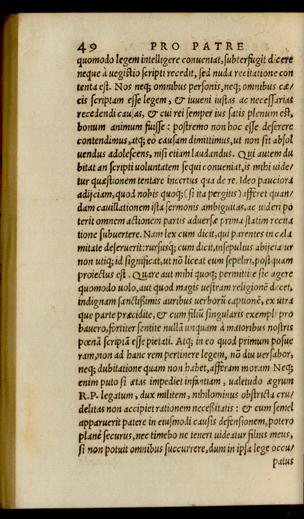 49 PRO PATRE
quomodo legem intelligere conueniat, subterfugit dicere
neque à uestigio scripti recedit, sed nuda recitatione con
tenta est. Nos neq; omnibus personis, neq; omnibus cæ/
cis scriptam esse legem, & iuueni iustas ac necessarias
recedendi causas, & cui rei semper ius satis plenum est,
bonum animum fuisse: postremo non hoc esse deserere
contendimus, atq; eo causam dimittimus, ut non sit absol
uendus adolescens, nisi etiam laudandus. Qui autem du
bitat an scripti uoluntatem sequi conueniat, is mihi uide/
tur quæstionem tentare incertus qua de re. Ideo pauciora
adijciam, quod nobis quoq; (si ita pergius) afferet quan/
dam cauillationem ista sermonis ambiguitas, ac uideri po
terit omnem actionem partis aduersæ prima statim recita
tione subuertere. Nam lex cum dicit, qui parentes in cala
mitate deseruerit: rursusq; cum dicit, insepultus abijciatur
non utiq; id significat, ut nō liceat eum sepeliri, postquam
proiectus est. Quare aut mihi quoq; permittite sic agere
quomodo uolo, aut quod magis uestram religionē decet,
indignam sanctissimis auribus uerborū captionē, ex utra
que parte præcidite, & cum filiū singularis exempli pro
bauero, fortiter sentite nullā unquam à maioribus nostris
pœnā scriptā esse pietati. Atq; in eo quod primum posue
ram, non ad hanc rem pertinere legem, nō diu uersabor,
neq; dubitatione quam non habet, afferam moram Neq;
enim puto si ætas impediet infantiam, ualetudo ægrum
R.P. legatum, dux militem, nihilominus obstricta cru/
delitas non accipiet rationem necessitatis: & cum semel
apparuerit patere in eiusmodi causis defensionem, potero
planè securus, nec timebo ne teneri uideatur filius meus,
si non potuit omnibus succurrere, dum in ipsa lege occu/
patus